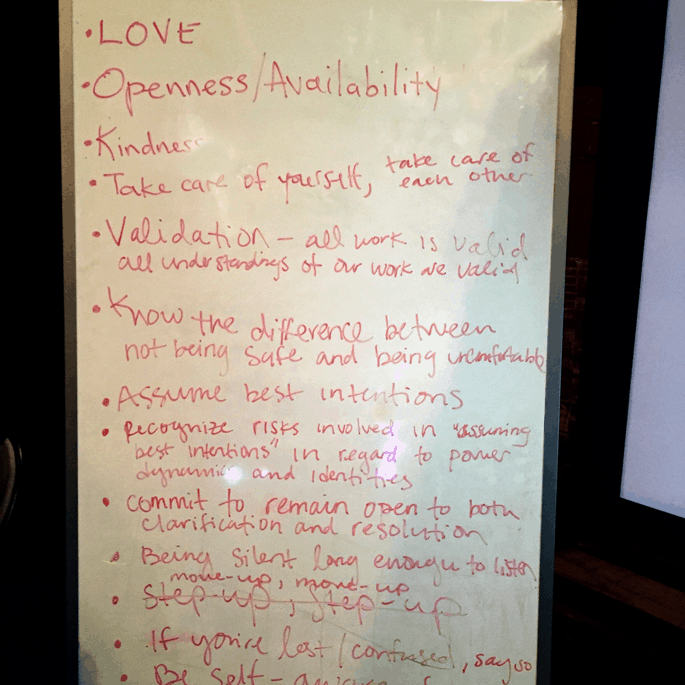 • LOVE
• Openness/Availability
• Kindness
• Take care of yourself, take care of
each other
• Validation – all work is valid
all understandings of our work are valid
• Know the difference between
not being safe and being uncomfortable
• Assume best intentions
• Recognize risks involved in "assuming
best intentions" in regard to power
dynamics and identities
• commit to remain open to both
clarification and resolution
• Being silent long enough to listen
move-up, move-up
• step-up, step-up
• If you're lost/confused, say so
• Be self-